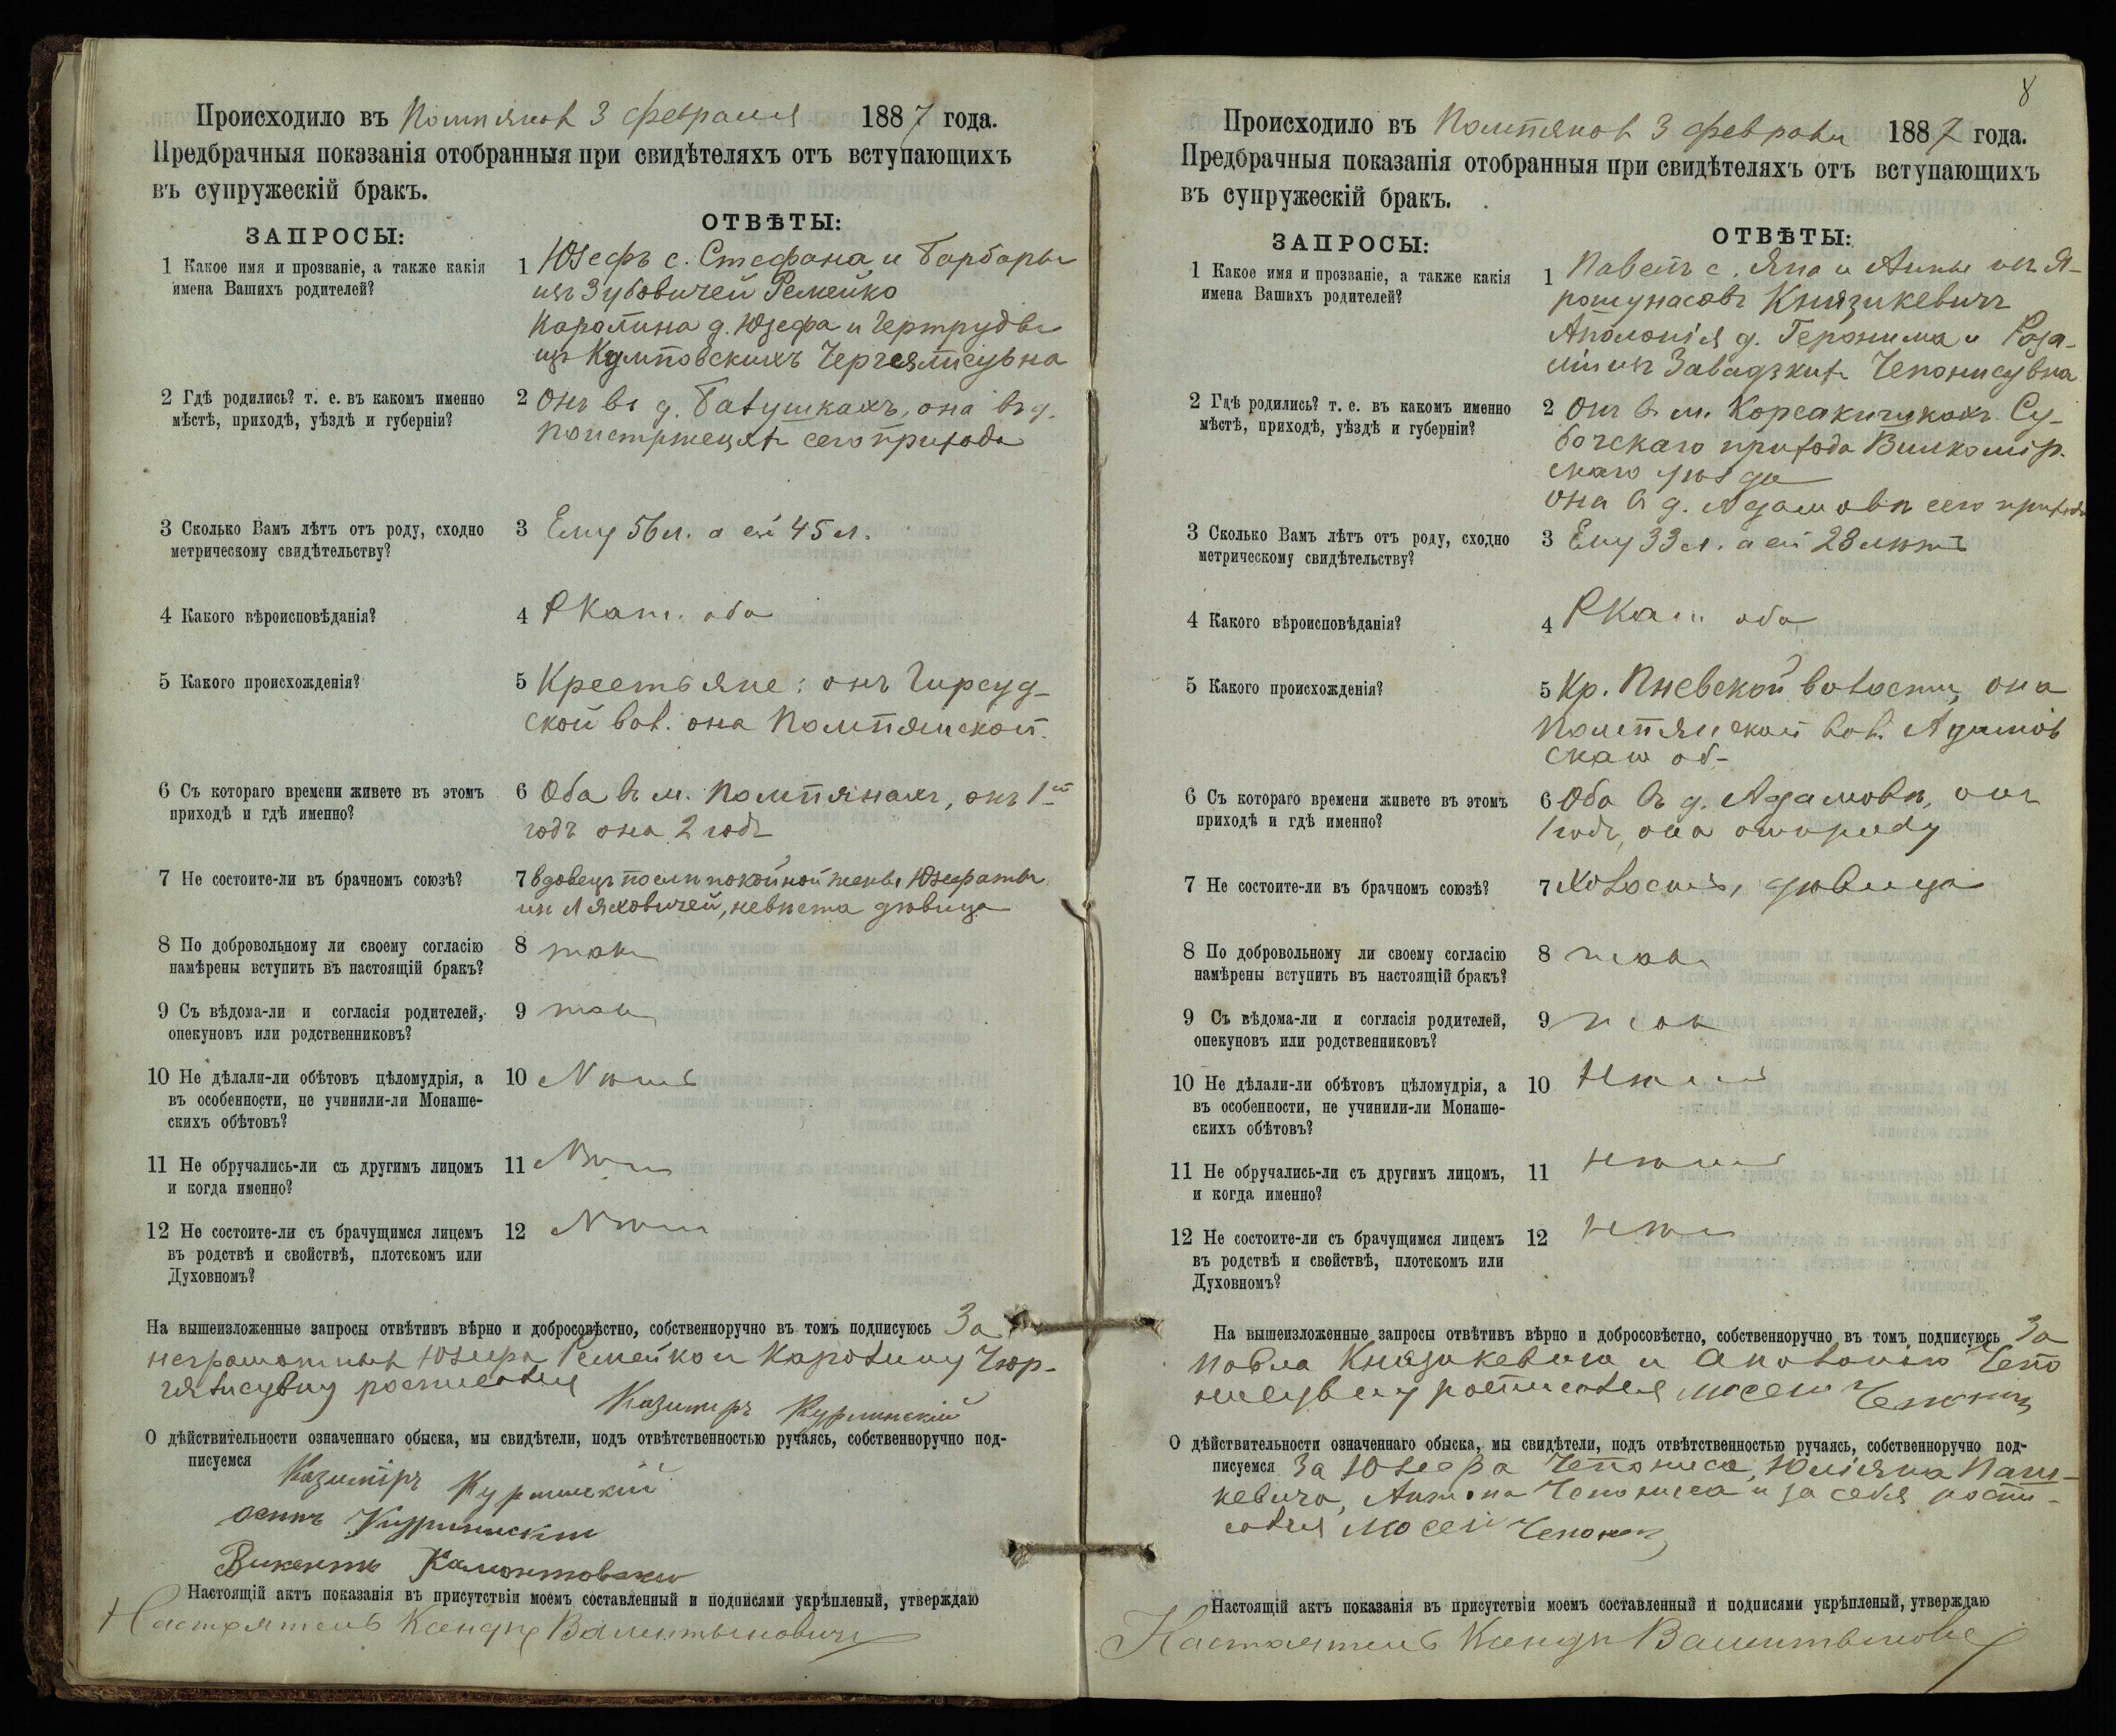 Происходило въ Помпянах 3 февраля 1887 года.
Предбрачныя показанія отобранныя при свидѣтеляхъ отъ вступающихъ
въ супружескій бракъ.
ЗАПРОСЫ:
ОТВѢТЫ:
1 Какое имя и прозваніе, а также какія
имена Вашихъ родителей?
1 Юзефъ с. Стефана и Барбары
изъ Зубовичей Ремейко
Каролина д. Юзефа и Гертруды
изъ
2 Гдѣ родились? т. е. въ какомъ именно
мѣстѣ, приходѣ, уѣздѣ и губерніи?
2 Онъ въ д. она въ д.
сего прихода
3 Сколько Вамъ лѣтъ отъ роду, сходно
метрическому свидѣтельству?
3 Ему 56 л. а ей 45 л.
4 Какого вѣроисповѣданія?
4 РКат. оба
5 Какого происхожденія?
5 Крестьяне: онъ
ской вол. она Помпянской.
6 Съ котораго времени живете въ этомъ
приходѣ и гдѣ именно?
6 Оба въ м. Помпянахъ, онъ 1ый
годъ она 2 годъ
7 Не состоите-ли въ брачномъ союзѣ?
7 вдовецъ послѣ покойной жены Юзефаты
изъ Ляховичей, невѣста дѣвица
8 По добровольному ли своему согласію
намѣрены вступить въ настоящій бракъ?
8 такъ
9 Съ вѣдома-ли и согласія родителей,
опекуновъ или родственниковъ?
9 такъ
10 Не дѣлали-ли обѣтовъ цѣломудрія, а
въ особенности, не учинили-ли Монаше-
скихъ обѣтовъ?
10 Нѣтъ
11 Не обручались-ли съ другимъ лицомъ
и когда именно?
11 Нѣтъ
12 Не состоите-ли съ брачущимся лицемъ
въ родствѣ и свойствѣ, плотскомъ или
Духовномъ?
12 Нѣтъ
На вышеизложенные запросы отвѣтивъ вѣрно и добросовѣстно, собственноручно въ томъ подписуюсь За
неграмотныхъ Юзефа Ремейко и Каролину
росписался
Казимиръ
О дѣйствительности означеннаго обыска, мы свидѣтели, подъ отвѣтственностью ручаясь, собственноручно под-
писуемся Казиміръ
Осипъ
Викентъ
Настоящій актъ показанія въ присутствіи моемъ составленный и подписями укрѣпленый, утверждаю
Настоятель Ксендзъ
8
Происходило въ Помпянах 3 февраля 1887 года.
Предбрачныя показанія отобранныя при свидѣтеляхъ отъ вступающихъ
въ супружескій бракъ.
ЗАПРОСЫ:
ОТВѢТЫ:
1 Какое имя и прозваніе, а также какія
имена Вашихъ родителей?
1 Павелъ с. Яна и Анны изъ Я-
Князикевичъ
Аполонія д. Геронима и Роза-
ліи изъ Завадзкихъ Чепонисувна
2 Гдѣ родились? т. е. въ какомъ именно
мѣстѣ, приходѣ, уѣздѣ и губерніи?
2 Онъ въ м. Корсакишкахъ Су-
бочскаго прихода Вилкомір-
скаго уѣзда
она въ д. Адамовѣ сего прихода
3 Сколько Вамъ лѣтъ отъ роду, сходно
метрическому свидѣтельству?
3 Ему 33 л. а ей 28 лѣтъ
4 Какого вѣроисповѣданія?
4 РКат. оба
5 Какого происхожденія?
5 Кр. Пневской волости, она
Помпянской вол. Адамов
скаго об-
6 Съ котораго времени живете въ этомъ
приходѣ и гдѣ именно?
6 Оба въ д. Адамовѣ, онъ
1 годъ, она отъ роду
7 Не состоите-ли въ брачномъ союзѣ?
7 Холостъ, дѣвица
8 По добровольному ли своему согласію
намѣрены вступить въ настоящій бракъ?
8 такъ
9 Съ вѣдома-ли и согласія родителей,
опекуновъ или родственниковъ?
9 такъ
10 Не дѣлали-ли обѣтовъ цѣломудрія, а
въ особенности, не учинили-ли Монаше-
скихъ обѣтовъ?
10 Нѣтъ
11 Не обручались-ли съ другимъ лицомъ,
и когда именно?
11 Нѣтъ
12 Не состоите-ли съ брачущимся лицемъ
въ родствѣ и свойствѣ, плотскомъ или
Духовномъ?
12 Нѣтъ
На вышеизложенные запросы отвѣтивъ вѣрно и добросовѣстно, собственноручно въ томъ подписуюсь За
Павла Князикевича и Аполонію Чепо
нисувну росписался
О дѣйствительности означеннаго обыска, мы свидѣтели, подъ отвѣтственностью ручаясь, собственноручно под-
писуемся За Юзефа Чепониса, Юліяна
кевича, Антона Чепониса и за себя роспи-
сался
Настоящій актъ показанія въ присутствіи моемъ составленный и подписями укрѣпленый, утверждаю
Настоятель Ксендзъ